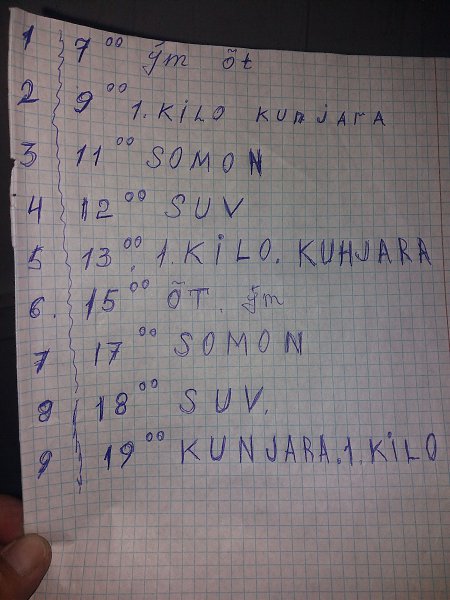 1 7 00 ўт õt
2 9 00 1. KILO KUNJARA
3 11 00 SOMON
4 12 00 SUV
5 13 00 1. KILO. KUHJARA
6. 15 00 ÕT. ўт
7 17 00 SOMON
8 18 00 SUV.
9 19 00 KUNJARA. 1. KILO